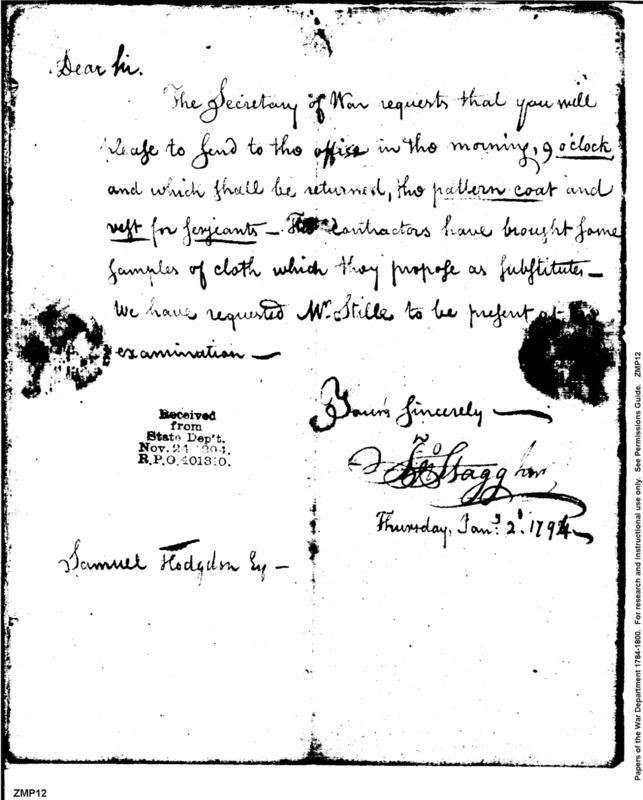 Dear Sir.
The Secretary of War requests that you will
please to send to the office in the morning, 9 o'clock
and which shall be returned, the pattern coat and
vest for serjeants — The Contractors have brought some
samples of cloth which they propose as substitutes —
We have requested Mr. Stille to be present at the
examination —
Yours sincerely —
Jno Stagg Junr
Thursday, Jany. 2d. 1794 —
Received
from
State Dep't.
Nov. 24 1894.
R.P.O. 401310.
Samuel Hodgdon Esq —
Papers of the War Department 1784-1800. For research and instructional use only. See Permissions Guide. ZMP12
ZMP12